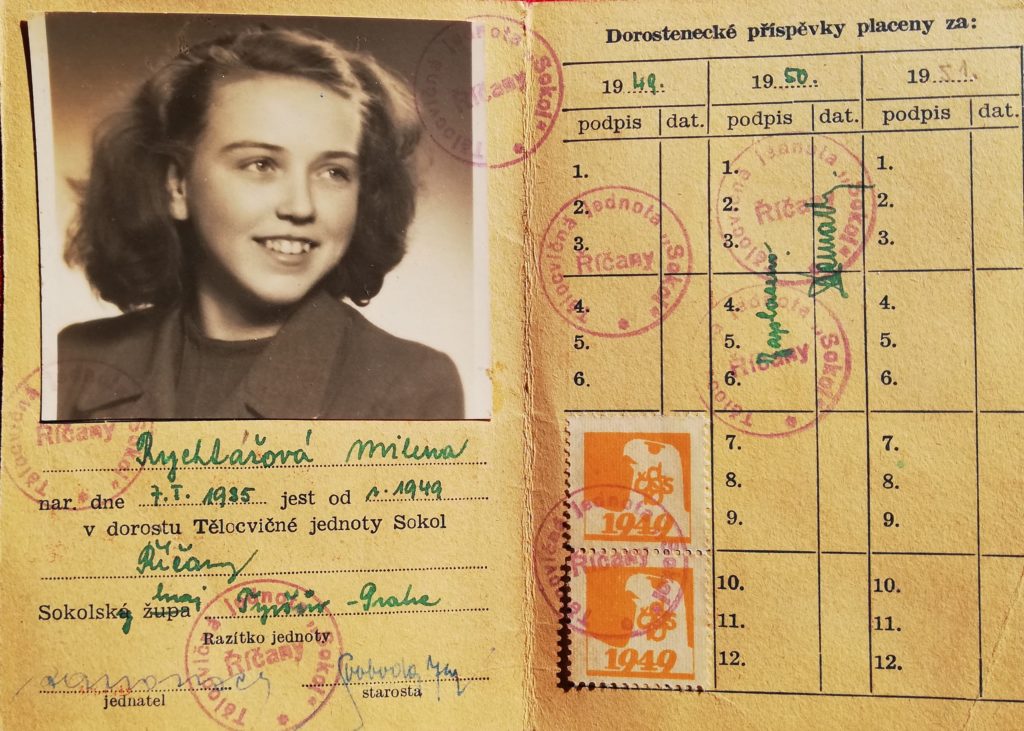 Rychtářová Milena
nar. dne 7. I. 1935 jest od r. 1949
v dorostu Tělocvičné jednoty Sokol
Říčany
Sokolský kraj župa Tyršův - Praha
Razítko jednoty
Svoboda
jednatel starosta
Tělocvičná Jednota „Sokol“ Říčany
Dorostenecké příspěvky placeny za:
1949. 1950. 1951.
podpis dat. podpis dat. podpis dat.
1. 1. 1.
2. 2. 2.
3. 3. 3.
4. 4. 4.
5. 5. 5.
6. 6. 6.
Zaplaceno
Tělocvičná Jednota „Sokol“ Říčany
Tělocvičná Jednota „Sokol“ Říčany
Tělocvičná Jednota „Sokol“ Říčany
7. 7.
8. 8.
9. 9.
1949
10. 10.
11. 11.
12. 12.
1949